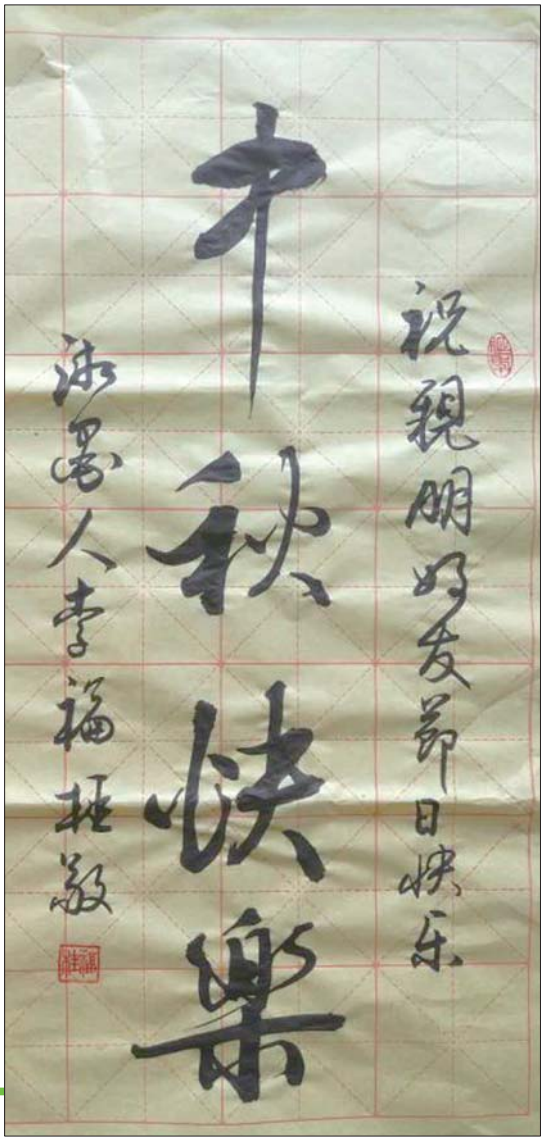 祝親朋好友節日快乐
中秋快樂
墨人李福敬